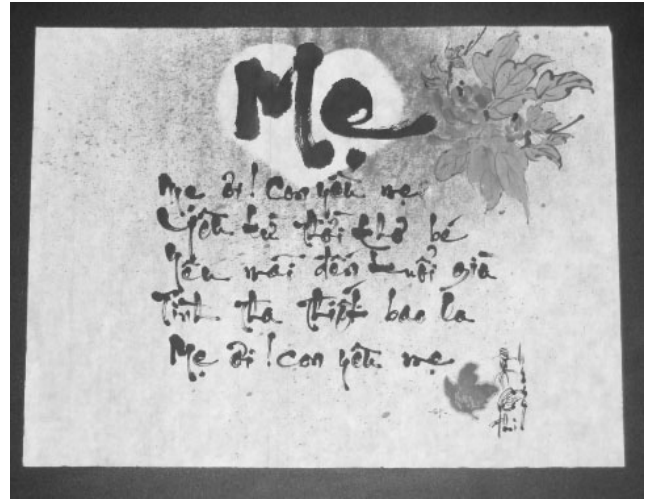 Mẹ
Mẹ ơi! Con yêu mẹ
Yêu từ thời thơ bé
Yêu mãi đến tuổi già
Tình tha thiết bao la
Mẹ ơi! con yêu mẹ